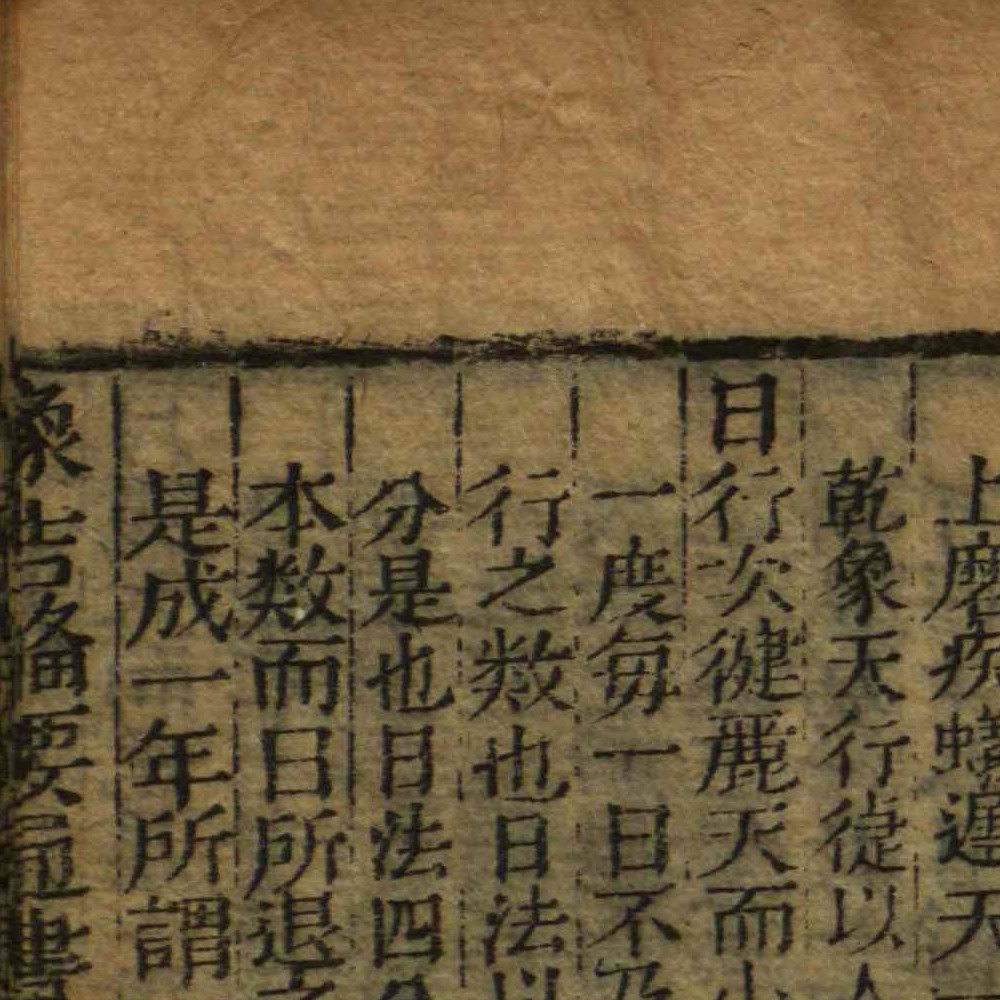 上磨疾蟻遲天
乾象天行徤以人
日行次徤麗天而少
一度每一日不及
行之数也日法以
分是也日法四分
本数而日所退之
是成一年所謂
象吉備要通書